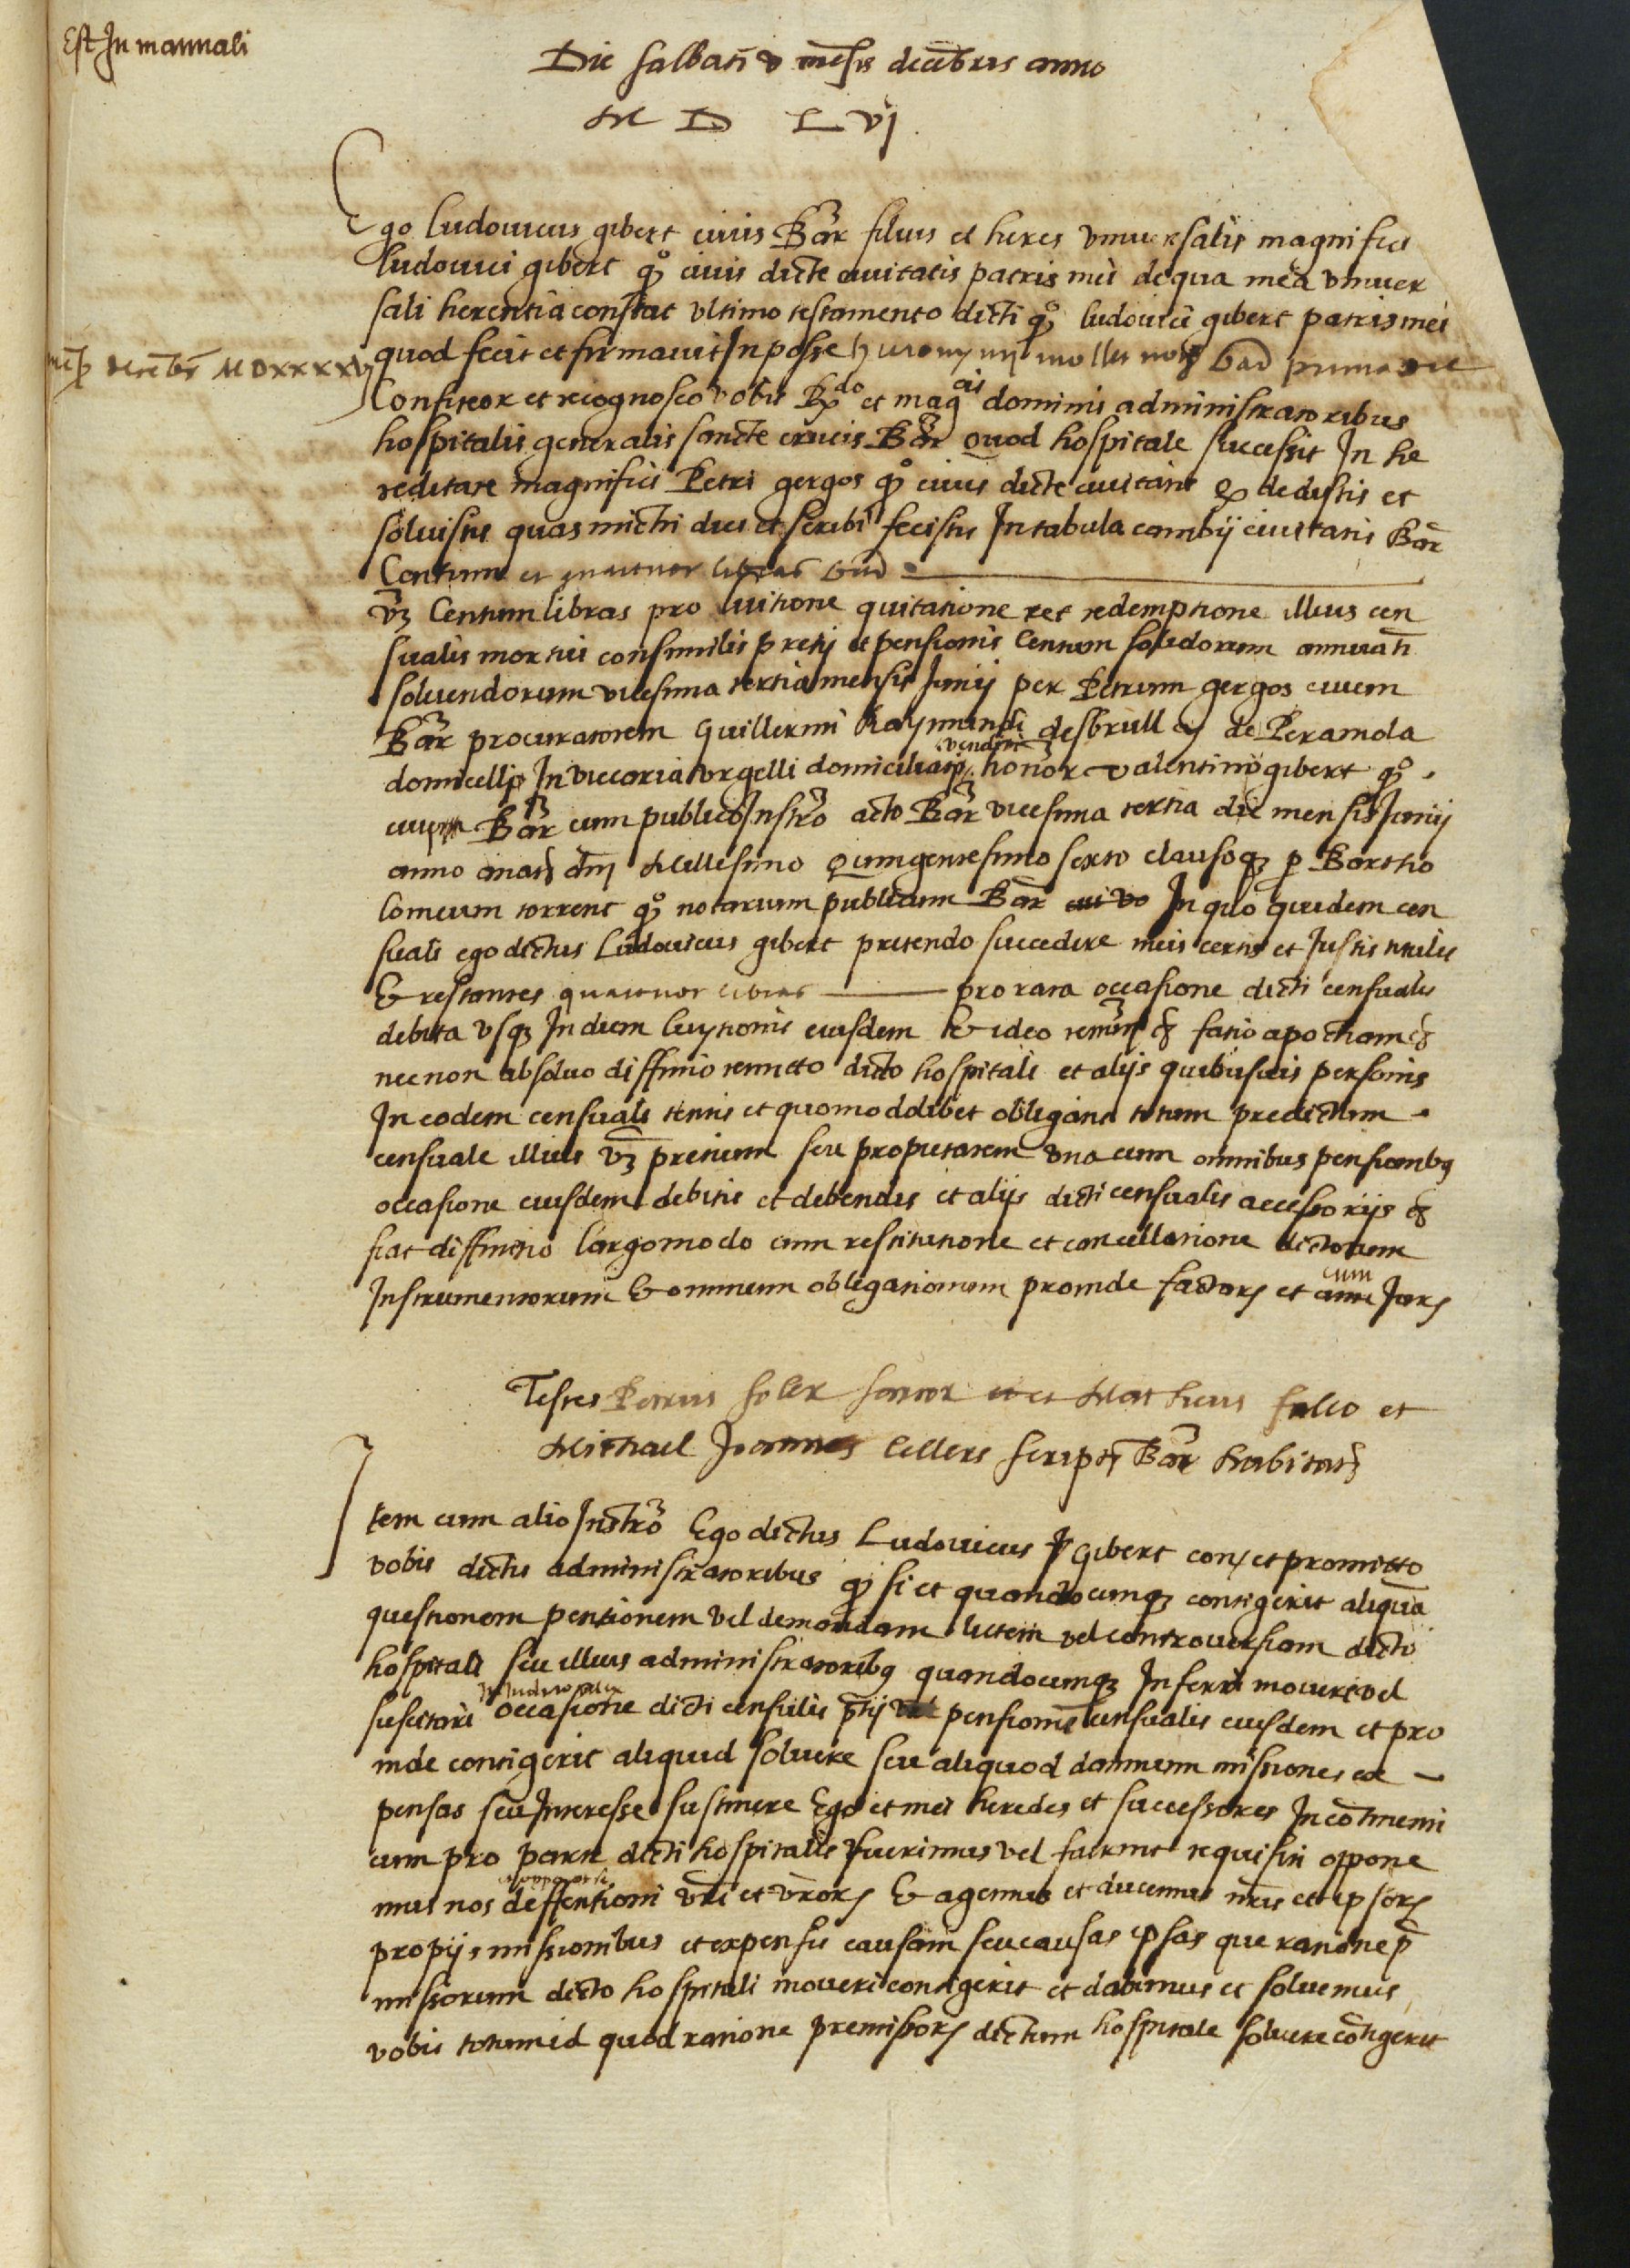 Est In manuali
Die sabbati v mēsis decēbris anno
M D L vj
Ego ludouicus gibert ciuis Bar̄ filius et heres vniuersalis magnifici
ludouici gibert qº ciuis dicte ciuitatis patris mei de qua mea vniuer
sali herentia constat vltimo testamento dicti qº ludouici gibert patris mei
quod fecit et firmauit In posse hieronymi mollet notʒ bar̄ prima die
mēsʒ decēbr̄ MDXXXXvj
Confiteor et recognosco vobis Rdo et magcis dominis administratoribus
hospitalis generalis sancte crucis Bar̄ quod hospitale successit In he
reditate magnifici Petri gergos qº ciuis dicte ciuitatis qʒ dedistis et
soluistis quas michi dici et scribi fecistis In tabula cambij ciuitatis Bar̄
Centum et quatuor libras bar̄
vʒ Centum libras pro luitione quitatione ret redemptione illius cen
sualis mortui consimilis pretij et pensionis Centum solidorum annuati
soluendorum vicesima tertia mensis Junij per Petrum gergos ciuem
Bar̄ procuratorem Guillermi Raymundi desbrull de Peramola
domicelli In viccaria vrgelli domiciliati venditi honor valentino gibert qº
ciui Bar̄ cum publico Instrō acto Bar̄ vicesima tertia die mensis Junij
anno a natʒ dnj Millesimo Quingentesimo sexto clausoqʒ p Bartho
lomeum torrent qº notarium publicum Bar̄ In quo quidem cen
suali ego dictus Ludouicus gibert pretendo succedere meis certis et Justis titulis
Et restantes quatuor libras pro rata occasione dicti censualis
debita vsqʒ In diem luytionis eiusdem Et ideo renunʒ &ʒ facio apocham &ʒ
necnon absoluo diffinio remitto dicto hospitali et alijs quibusuis personis
In eodem censuali tentis et quomodolibet obligatis totum predictum
censuale illius vʒ pretium seu proprietatem vna cum omnibus pensionibʒ
occasione eiusdem debitis et debendis et alijs dicti censualis accessorijs &ʒ
fiat diffinitio largo modo cum restitutione et cancellatione dictorum
Instrumentorum Et omnium obligationum proinde factarʒ et cum Jurʒ
Testes Petrus soler sartor et Matheus falco et
Michael Joannes Cellers scriptʒ Bar̄ habitatʒ
Item cum alio Instrō Ego dictus Ludouicus Gibert conʒ et promitto
vobis dictis administratoribus qʒ si et quandocumqʒ contigerit aliquā
questionem pentionem vel demandam litem vel controuersiam dicto
hospitali seu illius administratoribʒ quandocumqʒ Inferri moueri vel
suscitari In Juditio vel ex occasione dicti censualis p̄tij vel pensionis censualis eiusdem et pro
inde contigerit aliquid soluere seu aliquod damnum missiones ex
pensas seu Interesse sustinere Ego et mei heredes et successores In cōtinenti
cum pro parte dicti hospitalis fuerimus vel fuerint requisiti oppone
mus nos deffentioni vri et vrorʒ Et agemus et ducemus nris et ipsorʒ
propijs missionibus et expensis causam seu causas ipsas que ratione p̄
missorum dicto hospitali moueri contigerit et dabimus et soluemus
vobis totum id quod ratione premissorʒ dictum hospitale soluere cōtigerit